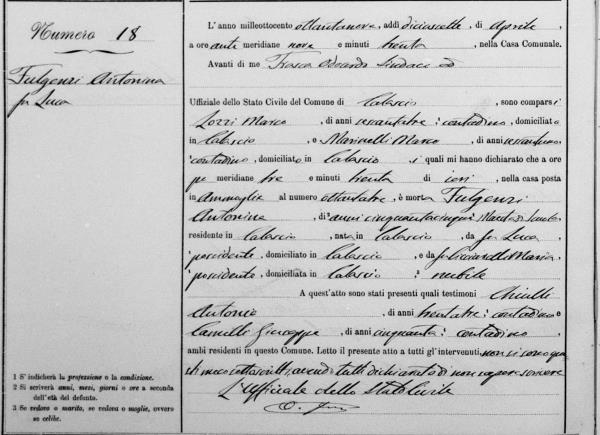 Numero 18
Fulgenzi Antonina
fu Luca
1 S' indicherà la professione o la condizione.
2 Si scriverà anni, mesi, giorni o ore a seconda
dell'età del defunto.
3 Se vedovo o marito, se vedova o moglie, ovvero
se celibe.
L' anno milleottocento ottantanove, addì diciassette, di Aprile,
a ore anti meridiane nove e minuti trenta, nella Casa Comunale.
Avanti di me Frasca Odoardo Sindaco ed
Uffiziale dello Stato Civile del Comune di Calascio, sono comparsi
Lozzi Marco, di anni sessantatre: contadino, domiciliato
in Calascio, e Marinelli Marco, di anni sessantuno
contadino, domiciliato in Calascio, i quali mi hanno dichiarato che a ore
po meridiane tre e minuti trenta di ieri, nella casa posta
in al numero ottantatre, è morta Fulgenzi
Antonina, di anni cinquantacinque
residente in Calascio, nata in Calascio, da fu Luca,
possidente, domiciliato in Calascio, e da fu Maria,
possidente, domiciliata in Calascio: nubile
A quest'atto sono stati presenti quali testimoni
Antonio, di anni trentatre: contadino e
Camilli Giuseppe, di anni cinquanta: contadino,
ambi residenti in questo Comune. Letto il presente atto a tutti gl' intervenuti, non si sono
meco sottoscritti, avendo tutti dichiarato di non sapere scrivere
L'Uffiziale dello Stato Civile